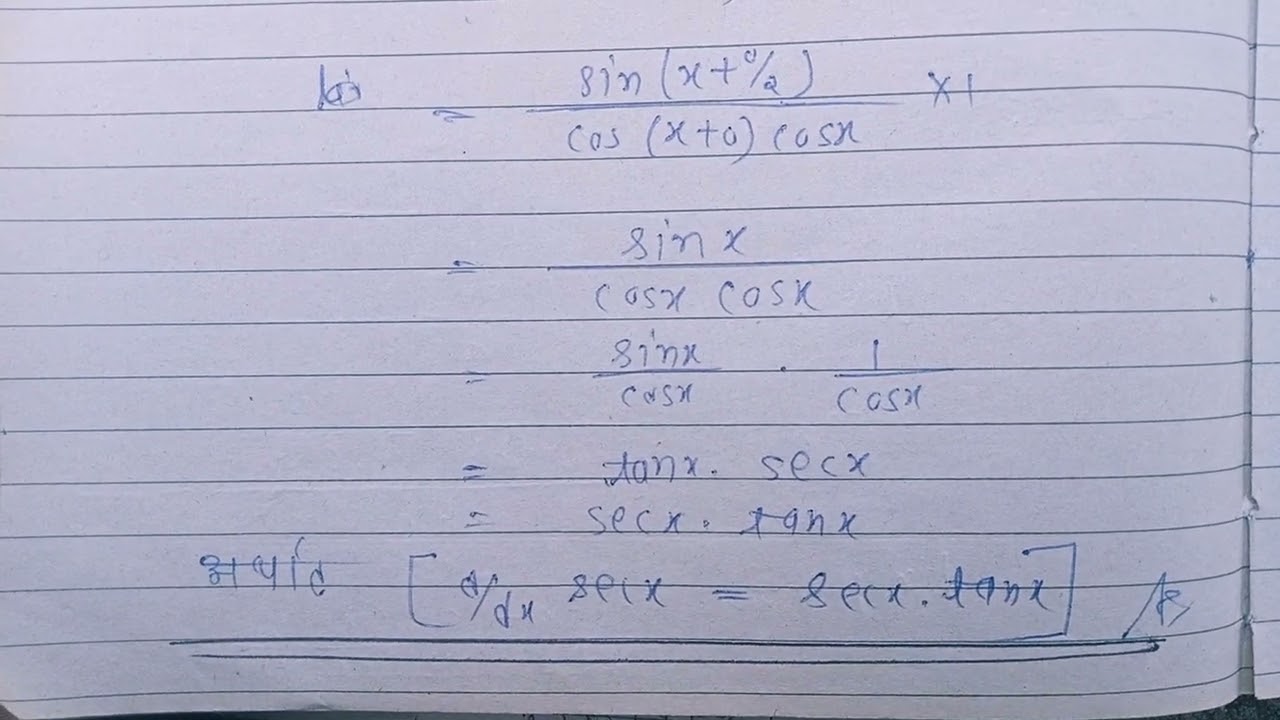 = sin (x+0/2) / cos (x+0) cosx ×1
= sin x / cosx cosx
= sinx / cosx . 1 / cosx
= tanx. secx
= secx. tanx
अर्थात [d/dx secx = secx. tanx]